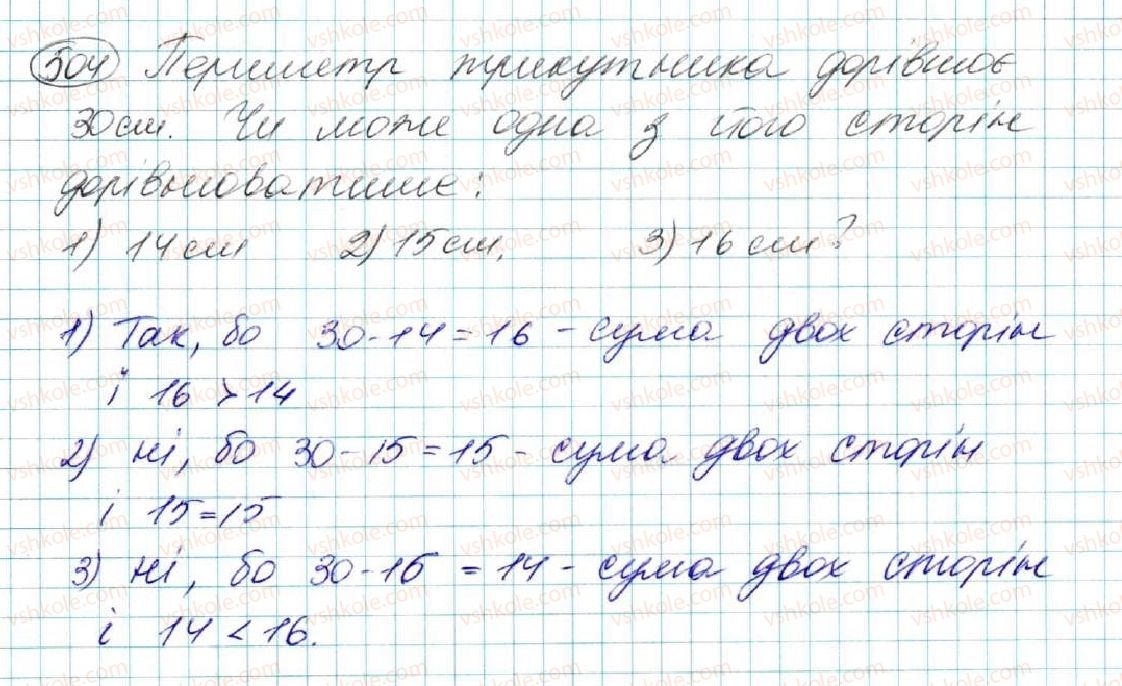 504 Периметр трикутника дорівнює
30 см. Чи може одна з його сторін
дорівнюватиме:
1) 14 см 2) 15 см, 3) 16 см?
1) Так, бо 30-14=16 - сума двох сторін
і 16 > 14
2) ні, бо 30-15=15 - сума двох сторін
і 15=15
3) ні, бо 30-16 = 14 - сума двох сторін
і 14 < 16.